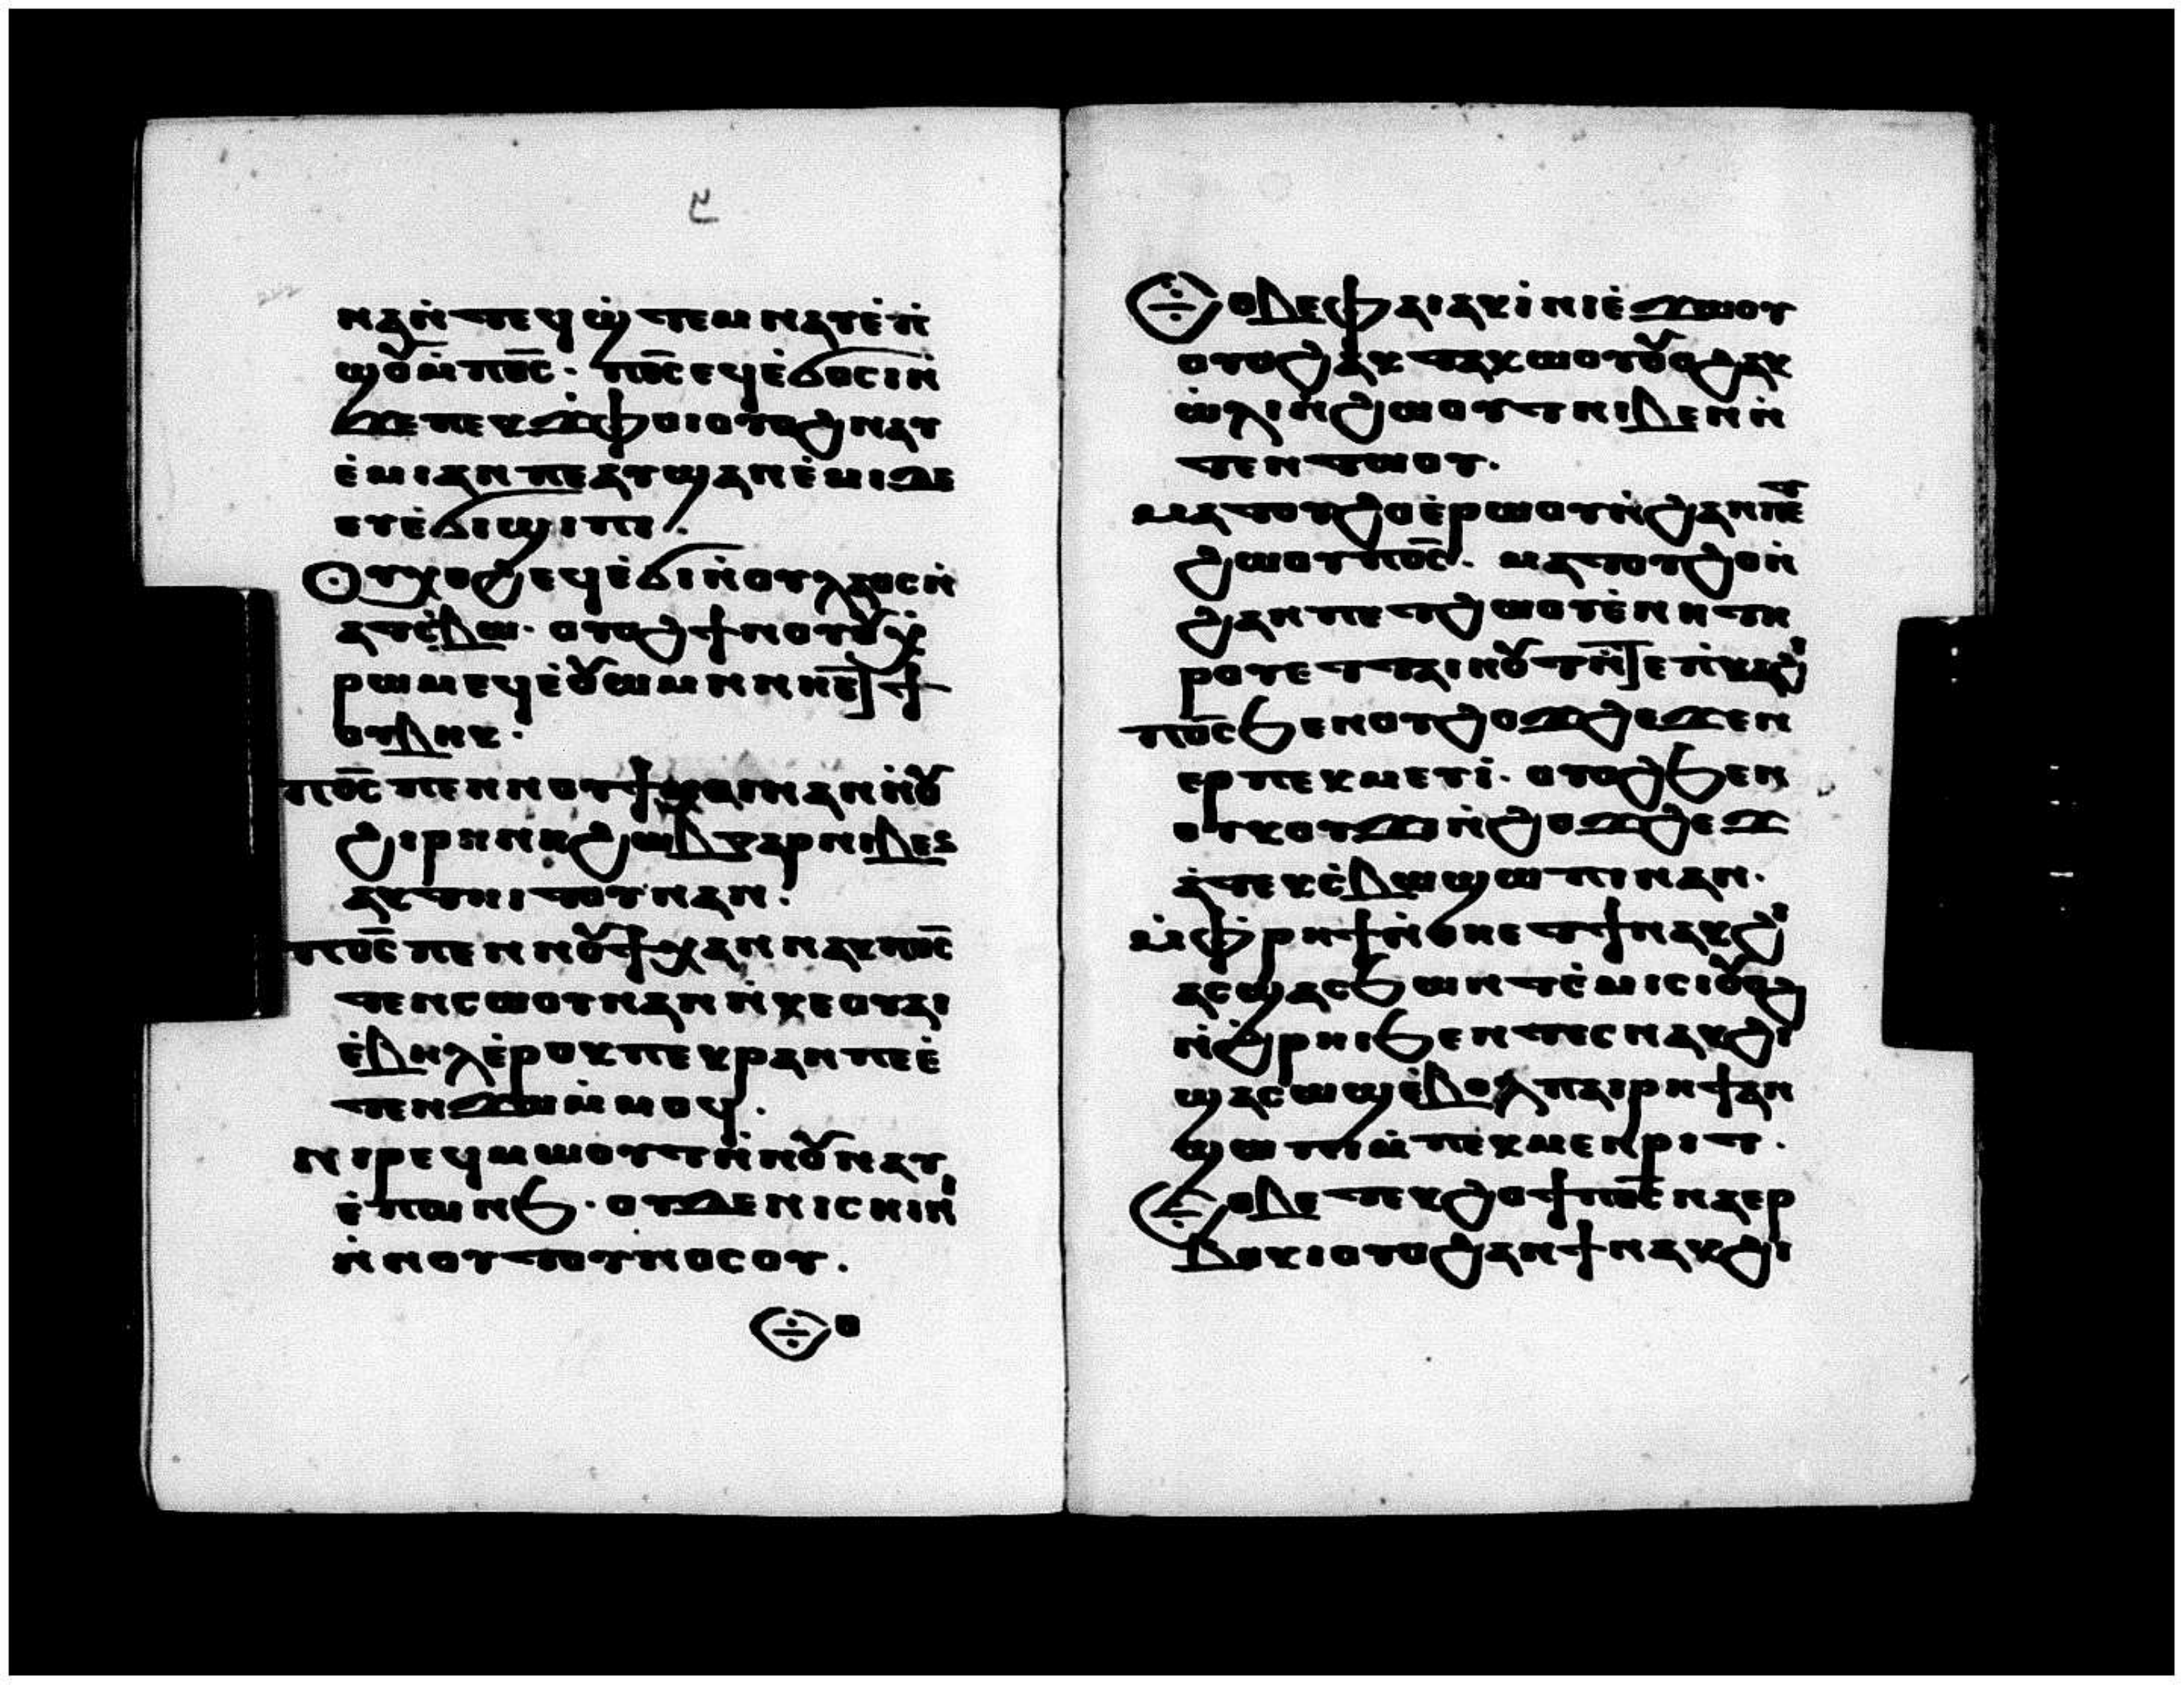 ⲛⲁⲛ̇ⲧⲉϥϣ̇ⲧⲉⲙⲛⲁⲩⲉ̇ⲡ̇
ⲱⲟ⩌ⲙ̇ⲡϭ̅ⲥ̅· ⲡϭ̅ⲥ̅ⲉϥⲉ̇ϭⲟⲥⲓⲛ̇
ϫⲉⲡⲉⲕϫ̇ⲫⲟⲓⲟⲩⲟϩⲛⲁⲩ
ⲉ̇ⲙⲓⲁⲛⲡⲉⲁⲩϣⲁⲛⲉ̇ⲙⲓⲇⲉ
ⲉⲩⲉ̇ϭⲓϣⲓⲡⲓ.
ⲟⲩⲭⲟϩⲉϥⲉ̇ϭⲓⲛ̇ⲟⲩⲗⲁⲟⲥⲛ̇
ⲁⲧⲥ̇ⲃⲱ· ⲟⲩⲟϩϯⲛⲟⲩⲟⲩⲭ̇
ⲣⲱⲙⲉϥⲉ̇ⲟⲩⲱⲙⲛⲛⲏⲉ̅ⲧϯ
ⲟⲩⲃⲏⲕ·
ⲡϭ̅ⲥ̅ⲡⲉⲛⲛⲟⲩϯⲙⲟⲓⲛⲁⲛⲛ̇ⲟⲩ
ϩⲓⲣⲏⲛⲏϩⲱⲃⲅⲁⲣⲛⲓⲃⲉⲛ
ⲁⲕⲧⲏⲓⲧⲟⲩⲛⲁⲛ.
ⲡϭ̅ⲥ̅ⲡⲉⲛⲛⲟⲩϯⲭⲁⲛⲛⲁⲕⲡϭ̅ⲥ̅
ⲧⲉⲛⲥⲱⲟⲩⲛⲁⲛⲛ̇ⲕⲉⲟⲩⲁⲓ
ⲉ̇ⲃⲏⲗⲉ̇ⲣⲟⲕⲡⲉⲕⲣⲁⲛⲡⲉⲉ̇
ⲧⲉⲛϫⲱⲙ̇ⲙⲟϥ.
ⲛⲓⲣⲉϥⲙⲱⲟⲩⲧⲛ̇ⲛⲟⲩⲛⲁⲩ
ⲉ̇ⲡⲱⲛϧ· ⲟⲩⲇⲉⲛⲓⲥⲏⲓⲛⲓ̇
ⲛ̇ⲛⲟⲩⲧⲟⲩⲛⲟⲥⲟⲩ.
ⲉⲑⲟ
ⲉⲑⲟⲃⲉⲫⲁⲓⲁⲕⲓ̇ⲛⲓⲉ̇ϫⲱⲟⲩ
ⲟⲩⲟϩⲁⲕⲧⲁⲕⲱⲟⲩⲟⲩⲟϩⲁⲕ
ⲱ̇ⲗⲓⲛ̇ϩⲱⲟⲩⲧⲛⲓⲃⲉⲛⲛ̇
ⲧⲉⲛⲧⲱⲟⲩ.
ⲙⲁⲧⲟⲩϩⲟⲉ̇ⲣⲱⲟⲩⲛ̇ϩⲁⲛⲡⲉⲧ
ϩⲱⲟⲩⲡϭ̅ⲥ̅. ⲙⲁⲧⲟⲩϩⲟⲛ̇
ϩⲁⲛⲡⲉⲧϩⲱⲟⲩⲉ̇ⲛⲏⲧⲏ
ⲣⲟⲩⲉⲧⲧⲁⲓⲛⲟⲩⲧⲛ̅ⲧⲉⲡ̇ⲕⲁϩⲓ
ⲡϭ̅ⲥ̅ϧⲉⲛⲟⲩϩⲟϫϩⲉϫⲉⲛ
ⲉⲣⲡⲉⲕⲙⲉⲩⲓ̇. ⲟⲩⲟϩϧⲉⲛ
ⲟⲩⲕⲟⲩϫⲓⲛ̇ϩⲟϫϩⲉϫ
ⲁ̇ⲧⲉⲕⲥ̇ⲃⲱϣⲱⲡⲓⲛⲁⲛ.
ⲙ̇ⲫⲣⲏϯⲛ̇ⲑⲏⲉⲧϯⲛⲁⲕϩⲓ
ⲁⲥϣⲁⲥϧⲱⲛⲧⲉ̇ⲙⲓⲥⲓⲟⲩⲟϩ
ⲛ̇ϩ̇ⲣⲏⲓϧⲉⲛⲧⲉⲥⲛⲁⲕϩⲓ
ϣⲁⲥⲱϣⲉ̇ⲃⲟⲗⲡⲁⲓⲣⲏϯⲁⲛ
ϣⲱⲡⲓⲙ̇ⲡⲉⲕⲙⲉⲛⲣⲓⲧ.
ⲉⲑⲟⲃⲉⲧⲉⲕϩⲟϯⲡϭ̅ⲥ̅ⲛⲁⲉⲣ
ⲃⲟⲕⲓⲟⲩⲟϩⲁⲛϯⲛⲁⲕϩⲓ